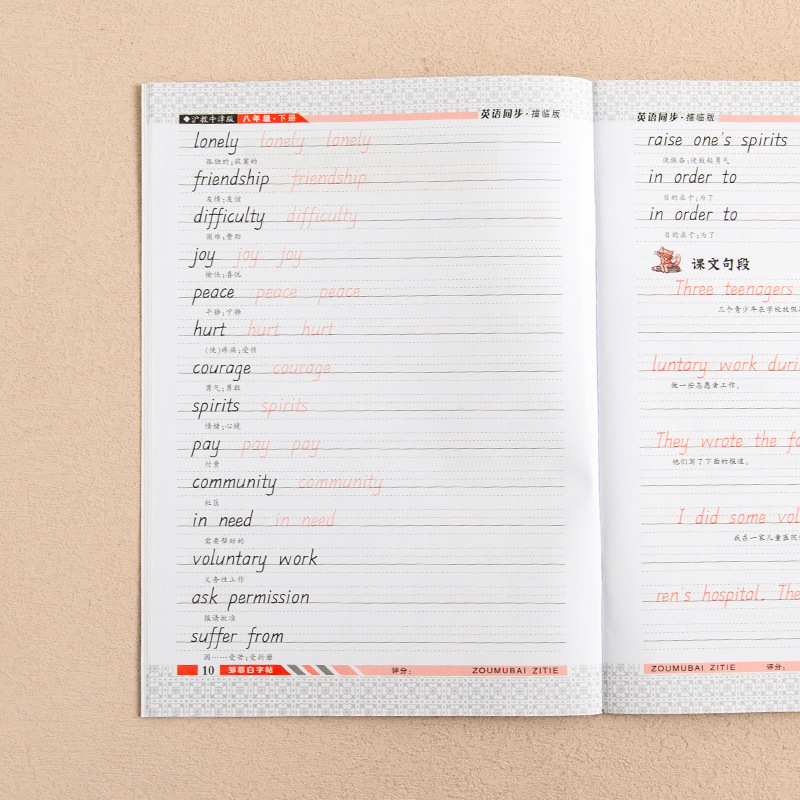 ◆沪教牛津版 八年级·下册 英语同步·描临版
lonely lonely lonely
孤独的;寂寞的
friendship friendship
友情;友谊
difficulty difficulty
困难;费劲
joy joy joy
愉快;喜悦
peace peace peace
平静;宁静
hurt hurt hurt
(使)疼痛;受伤
courage courage
勇气;勇敢
spirits spirits
情绪;心境
pay pay pay
付费
community community
社区
in need in need
需要帮助的
voluntary work
义务性工作
ask permission
报请批准
suffer from
因……受苦;受折磨
10 邹慕白字帖 评分: ZOUMUBAI ZITIE
英语同步·描临版
raise one's spirits
使振奋;使鼓起勇气
in order to
目的在于;为了
in order to
目的在于;为了
课文句段
Three teenagers
三个青少年在学校放假
luntary work duri
做一些志愿者工作。
They wrote the fo
他们写了下面的报道。
I did some vol
我在一家儿童医院
ren's hospital. The
ZOUMUBAI ZITIE 评分: